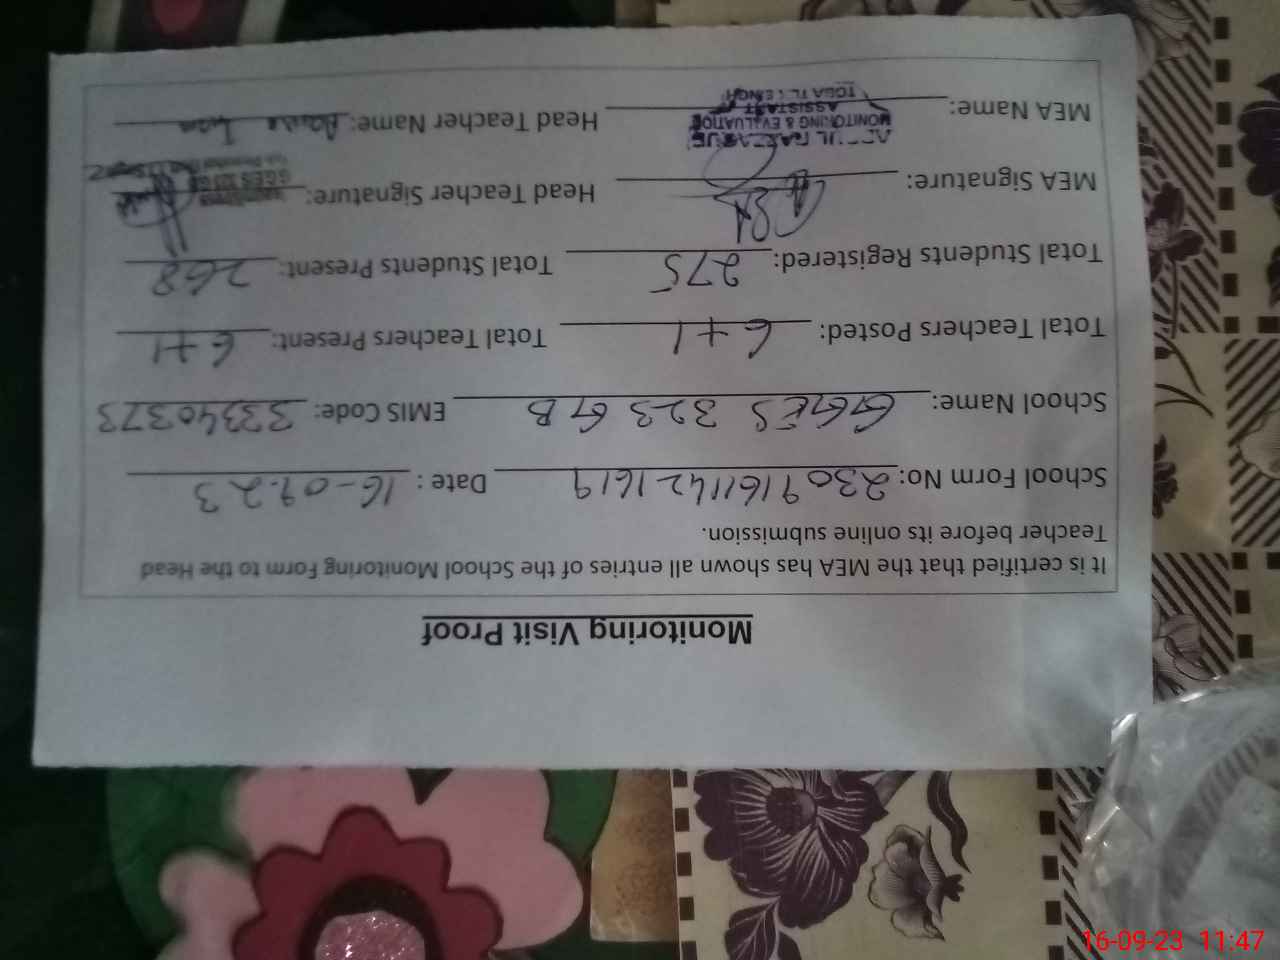 Monitoring Visit Proof
It is certified that the MEA has shown all entries of the School Monitoring Form to the Head
Teacher before its online submission.
School Form No: 2309161142 1619 Date : 16-09-23
School Name: GGES 323 GB EMIS Code: 33340373
Total Teachers Posted: 6+1 Total Teachers Present: 6+1
Total Students Registered: 275 Total Students Present: 268
MEA Signature: Head Teacher Signature:
MEA Name: Head Teacher Name:
MONITORING & EVALUATION
ASSISTANT
16-09-23 11:47